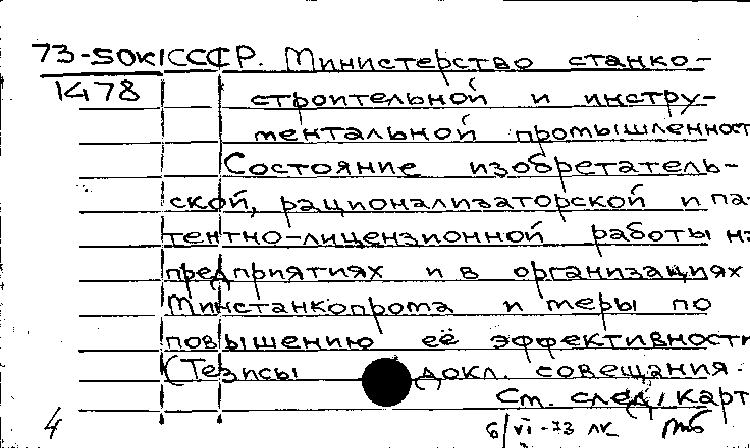 73-50к СССР. Министерство станко-
1478 строительной и инстру-
ментальной промышленност
Состояние изобретатель-
ской, рационализаторской и па-
тентно-лицензионной работы на
предприятиях и в организациях
Минстанкопрома и меры по
повышению её эффективности
(Тезисы докл. совещания.
См. след. карт
4 6/VI-73 лк